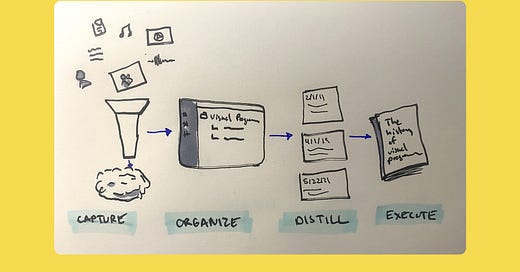 Visual Program
2/1/11
4/11/15
5/22/21
The
history
of
visual
program
CAPTURE
ORGANIZE
DISTILL
EXECUTE